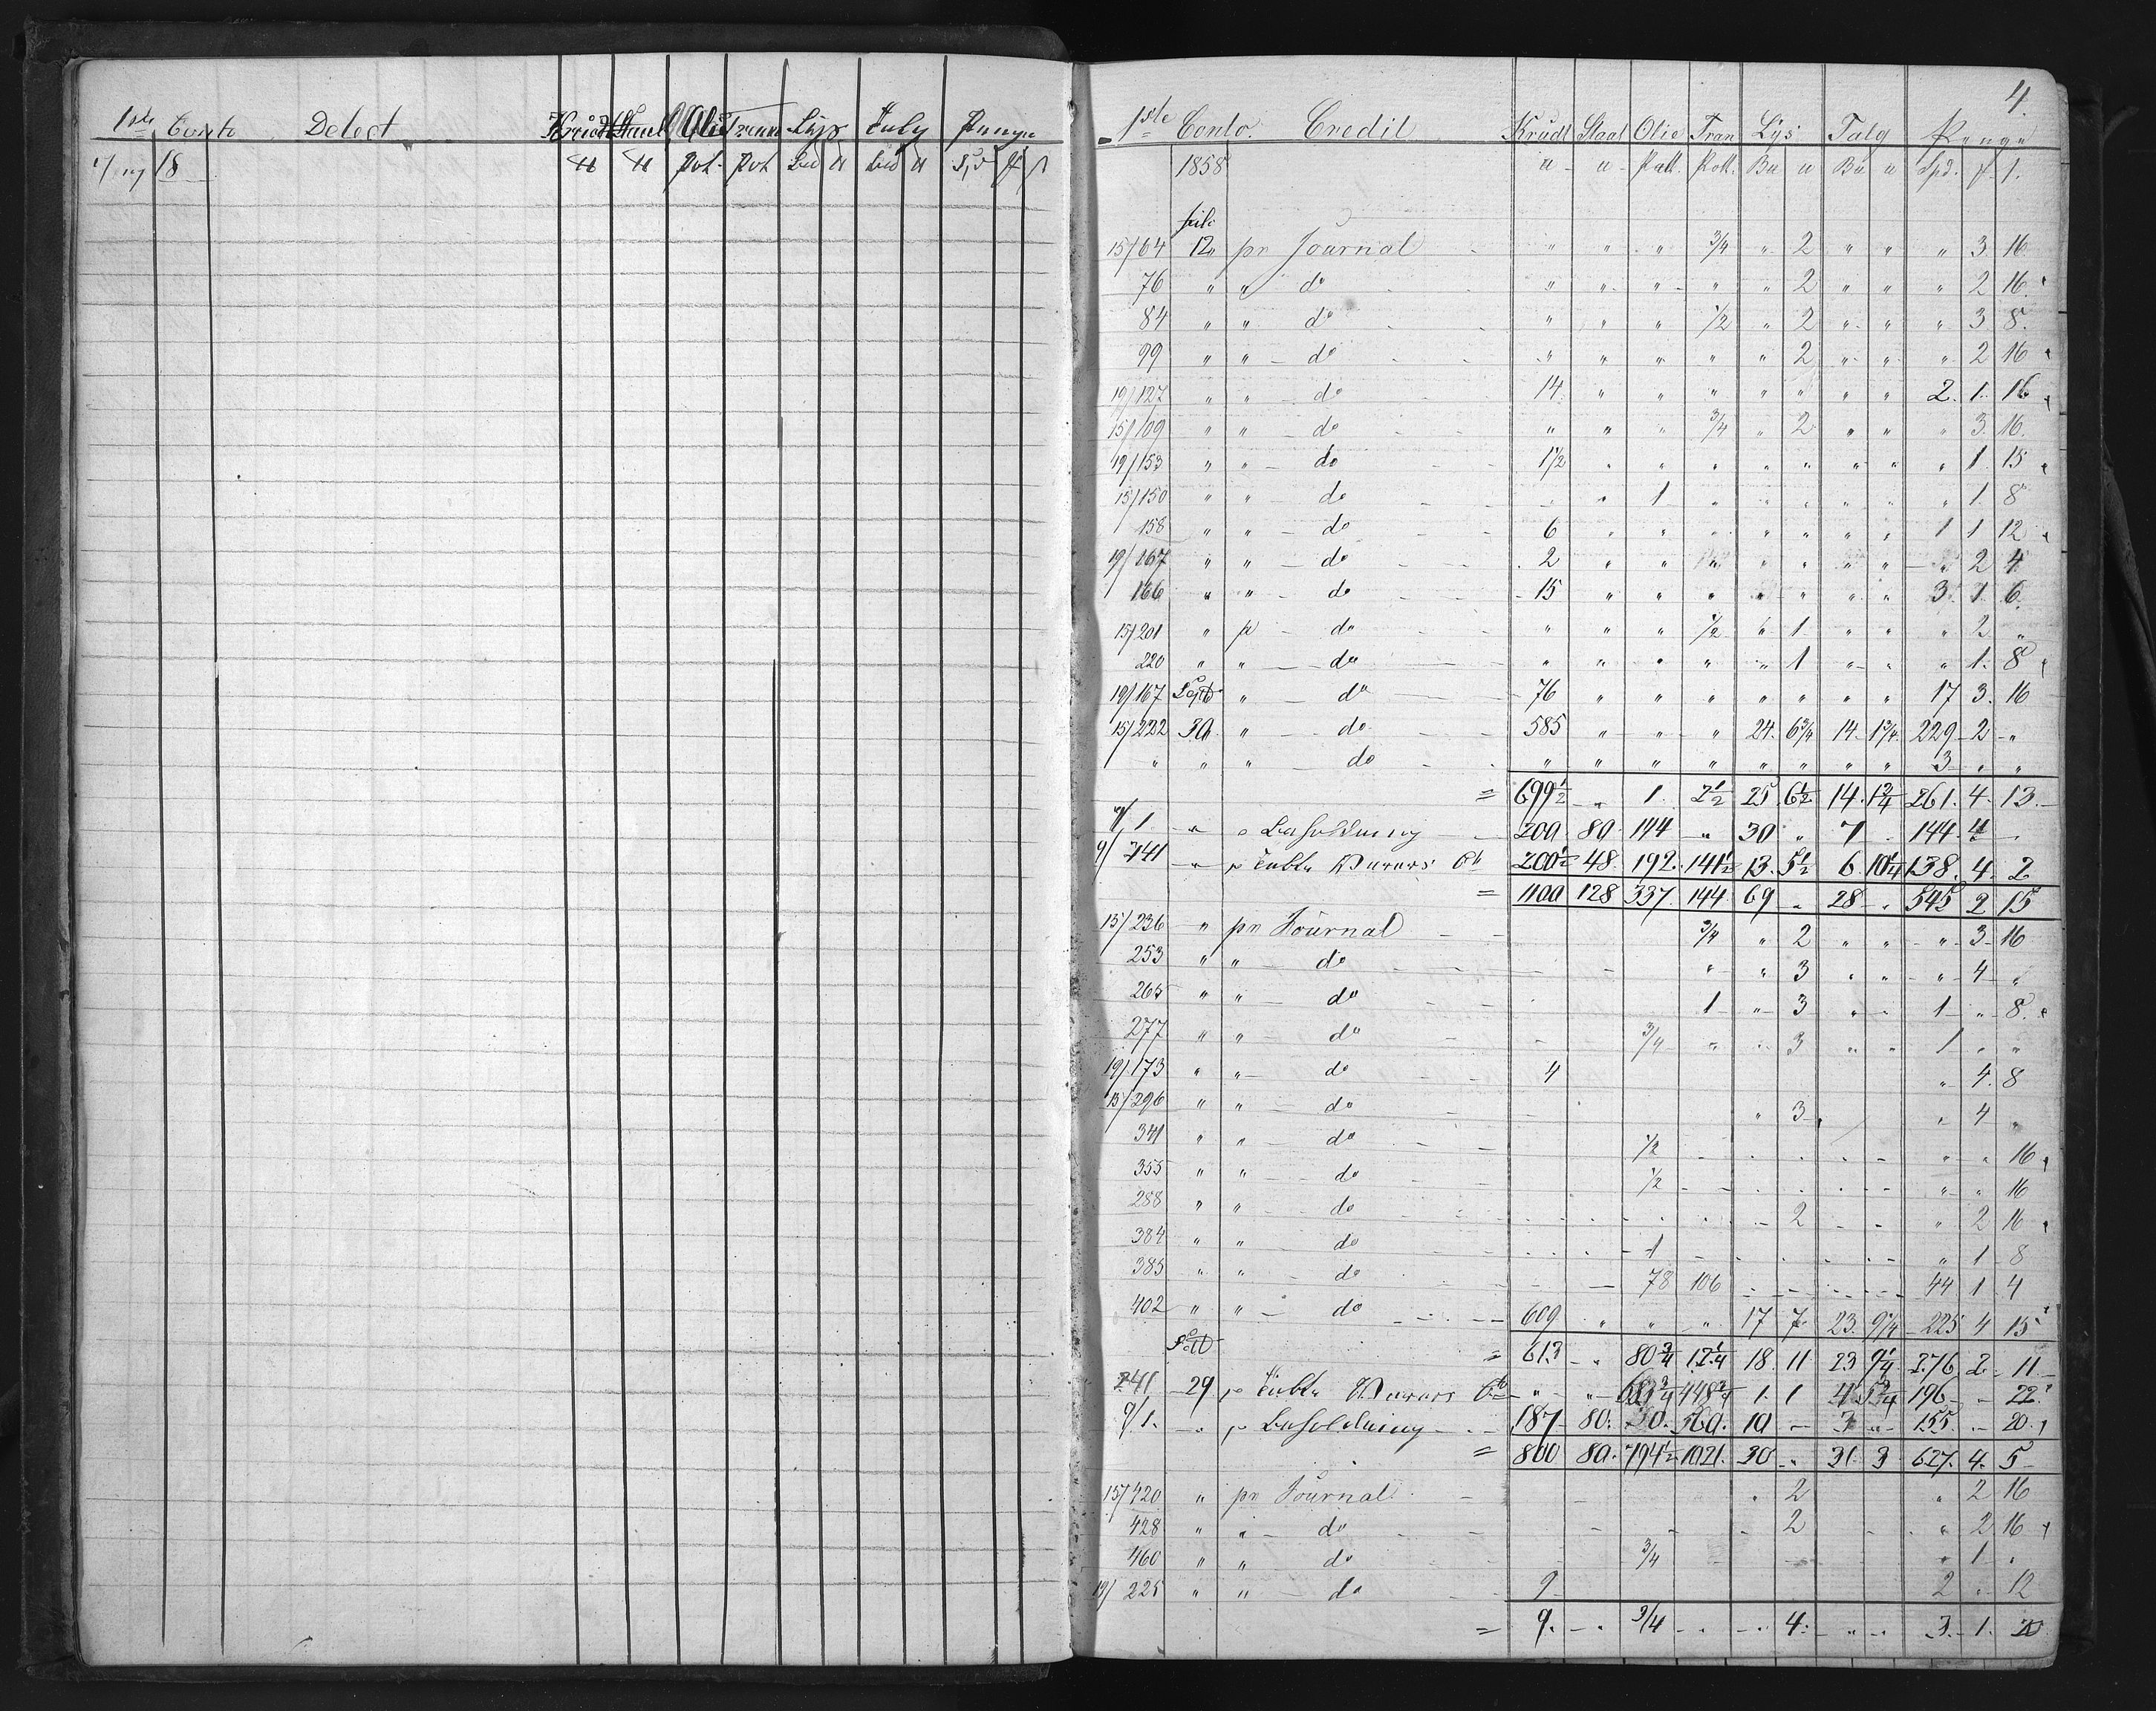 1ste Conto Debet Krudt Staal Olie Tran Lys Talg Penge
18 ℔ ℔ Pot. Pot ℔
4.
1ste Conto. Credit Krudt Staal Olie Tran Lys Talg Penge
1858 u u Pott. Pott. Bu u Bu u Spd.
Juli
15/64 12 " pr Journal " " " 3/4 " 2 " " " 3 16
76 " " do " " " " " 2 " " " 2 16
84 " " do " " " 1/2 " 2 " " " 3 8
99 " " do " " " " " 2 " " " 2 16
19/127 " " do 14 " " " " " " " 2 1 16
15/109 " " do " " " 3/4 " 2 " " " 3 16
19/153 " " do 1 1/2 " " " " " " " " 1 15
15/150 " " do " " 1 " " " " " " 1 8
158 " " do 6 " " " " " " " 1 1 12
19/167 " " do 2 " " " " " " " " 2 4
166 " " do 15 " " " " " " " 3 1 6
15/201 " p do " " " 1/2 " 1 " " " 2 "
220 " " do " " " " " 1 " " " 1 8
19/167 Septb " do 76 " " " " " " " 17 3 16
15/222 30 " do 585 " " " 24 6 3/4 14 1 3/4 229 2 "
" " " do " " " " " " " " 3 " "
= 699 1/2 " 1 2 1/2 25 6 1/2 14 1 3/4 261 4 13
9/1 " " Besoldning 200 80 144 " 30 " 7 " 144 4
9/241 " p 200 1/2 48 192 141 1/2 13 5 1/2 6 10 1/4 138 4 2
= 1100 128 337 144 69 " 28 " 545 2 15
15/236 " pr Journal 3/4 " 2 " " " 3 16
253 " " do " " 3 " " " 4 "
265 " " do 1 " 3 " " 1 " 8
277 " " do 3/4 " " 3 " " 1 " "
19/173 " " do 4 " 4 8
15/296 " " do " 3 " 4 "
341 " " do 1/2 " " 16
355 " " do 1/2 " " 16
288 " " do 2 " 2 16
384 " " do 1 " 1 8
385 " " do 78 106 44 1 4
402 " " do 609 " " " 17 7 23 9 1/4 225 4 15
= 613 " 80 3/4 18 11 23 9 1/4 276 2 11
241 29 p 448 3/4 1 1 4 5 3/4 196 " 22
9/1 " p Besoldning 187 80 30 560 10 3 " 155 " 20
= 800 80 794 1/2 1021 30 " 31 3 627 4 5
15/420 " pr Journal " 2 " 2 16
428 " " do 2 " 2 16
460 " " do 3/4 " 1 "
19/225 " " do 9 2 " 12
= 9 " 3/4 4 " " 3 1 20